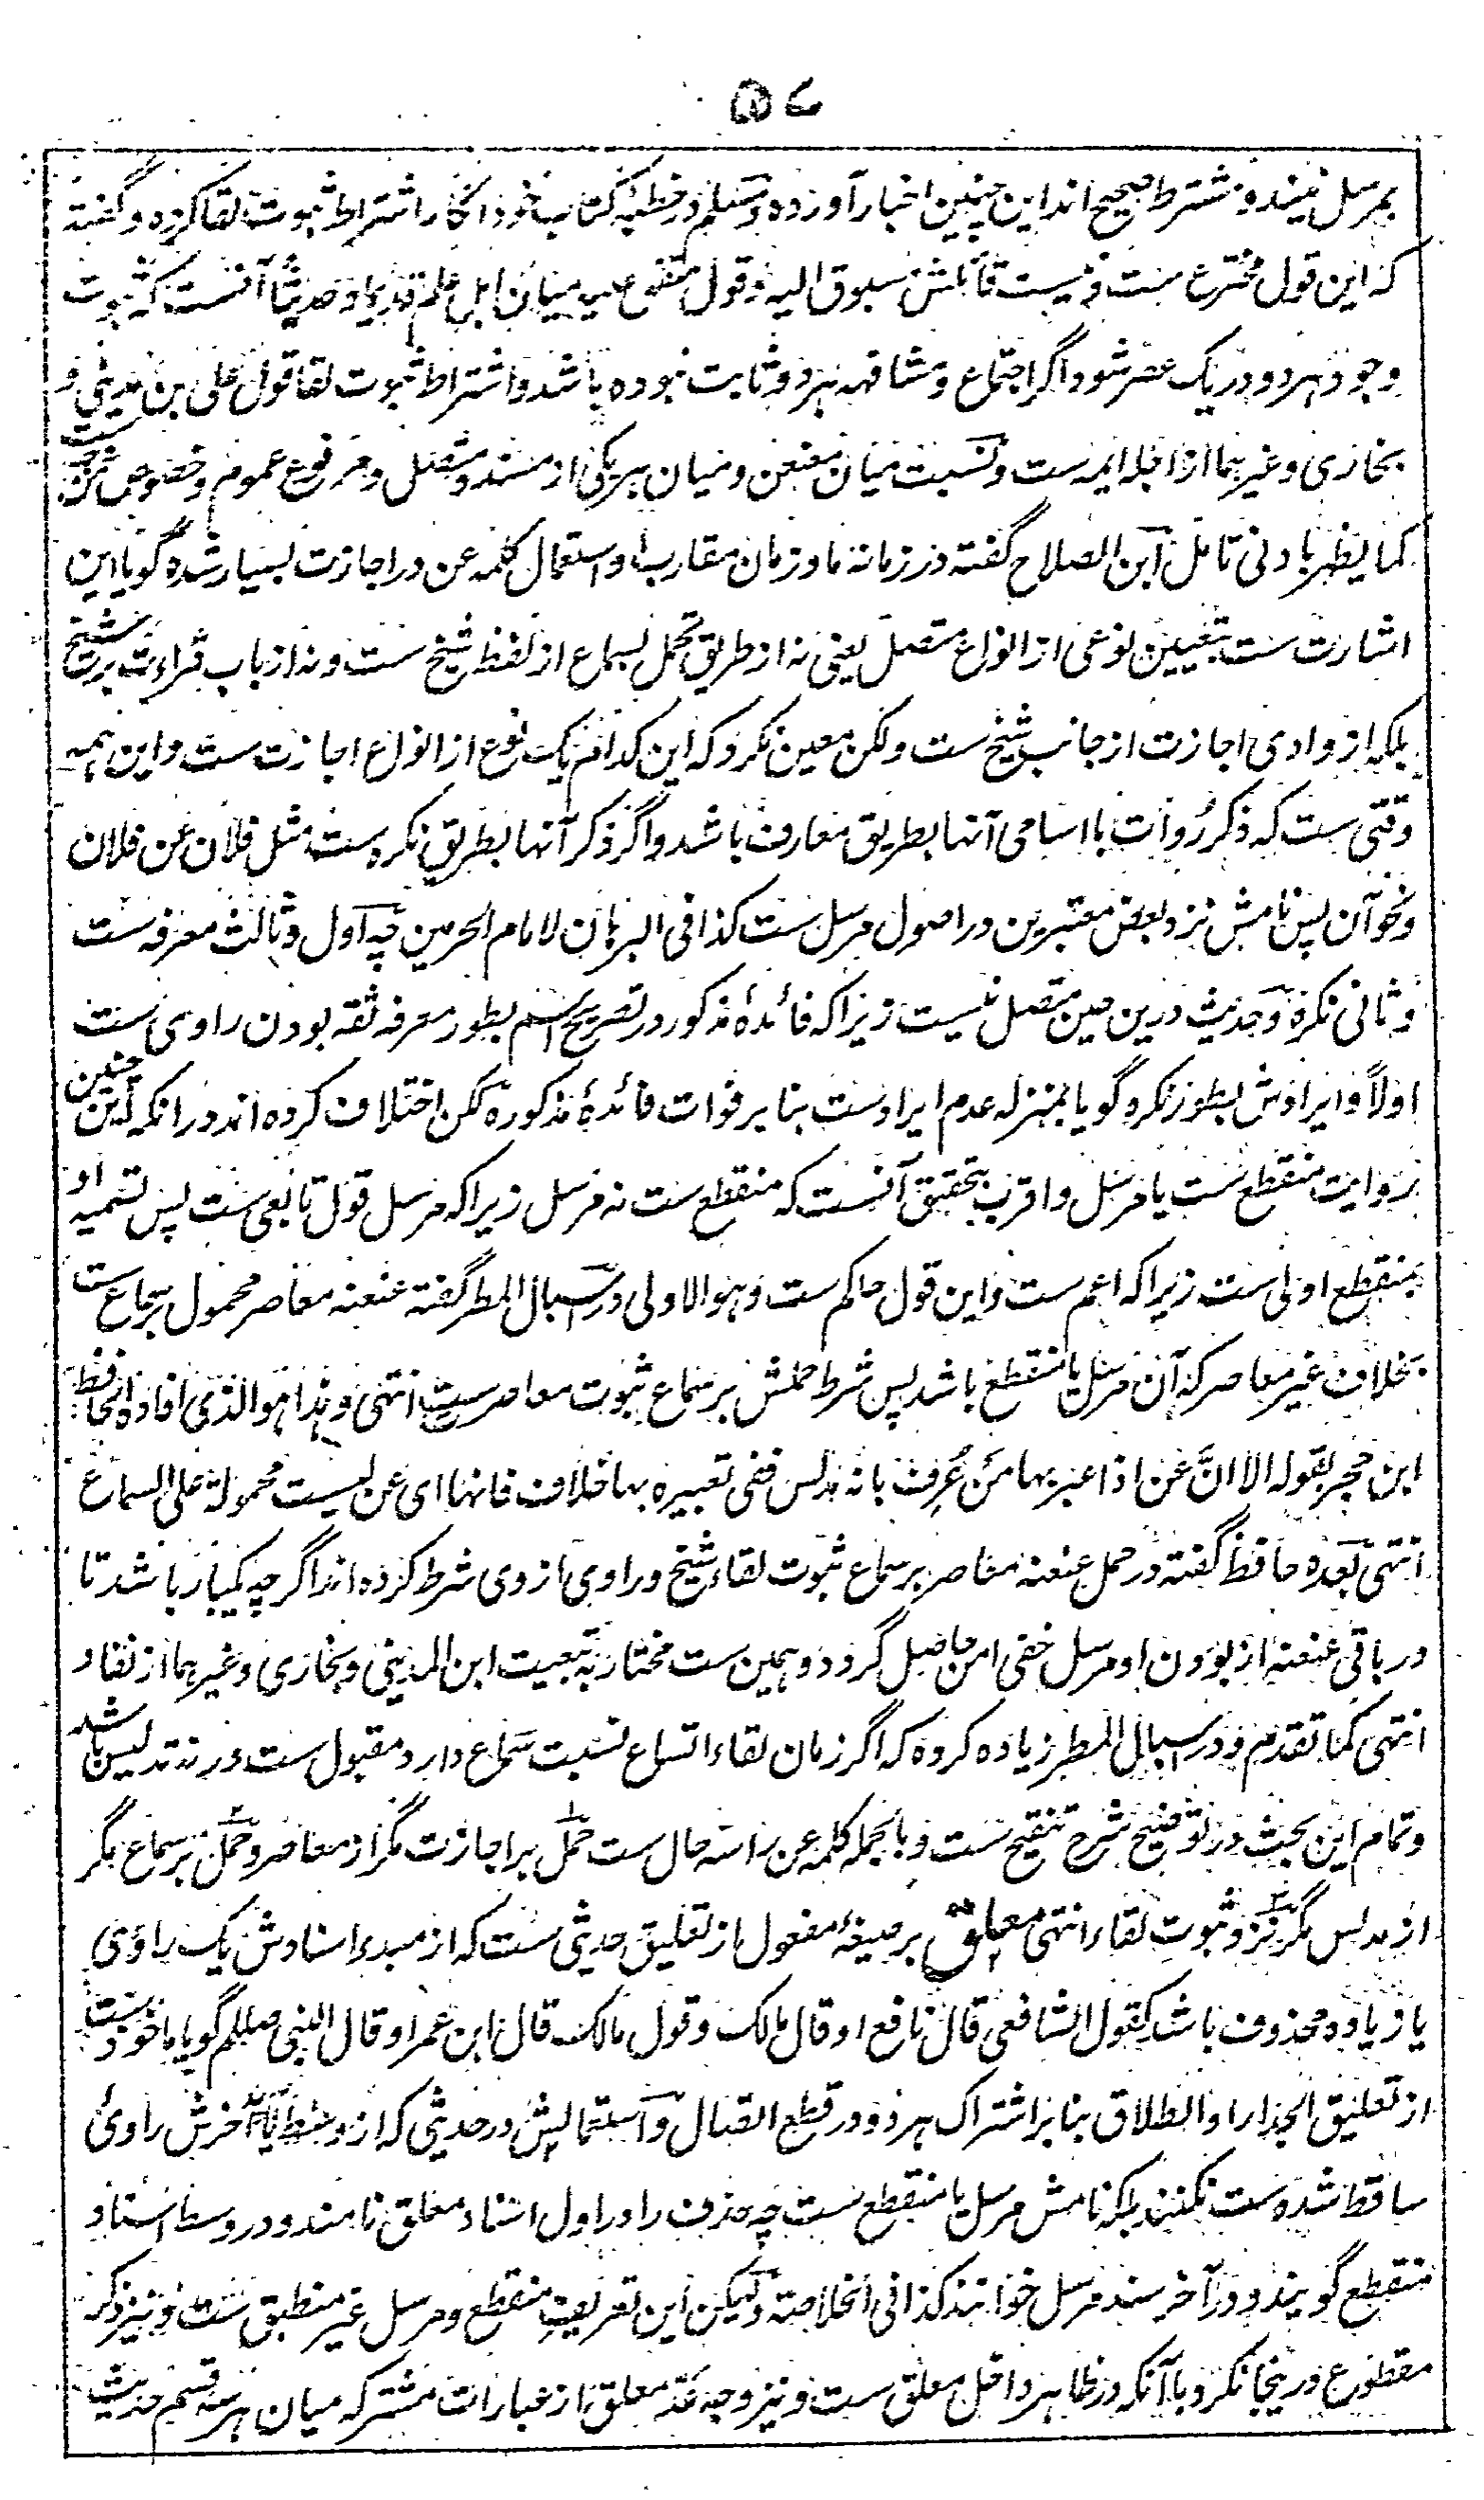 ۵۷
بمرسل نیند و مشترط صحیح اند این چنین اخبار آورده و مسلم در خطبه کتاب خود انکار اشتراط ثبوت لقا کرده و گفته
که این قول مخترع ست و نیست قائلش مسبوق الیه و قول متفق علیه میان اهل علم قدیما و حدیثا آنست که ثبوت
وجود هر دو در یک عصر شود اگر اجتماع و مشافهه هر دو ثابت نبوده باشد و اشتراط ثبوت لقا قول علی بن مدینی و
بخاری و غیرهما از اجله ایمه ست و نسبت میان معنعن و میان هر یکی از مسند و متصل و مرفوع عموم و خصوص من وجه ست
کما یظهر بادنی تامل ابن الصلاح گفته در زمانه ما و زمان مقارب او استعمال کلمه عن در اجازت بسیار شده گویا این
اشارت ست بتعیین نوعی از انواع متصل یعنی نه از طریق تحمل بسماع از لفظ شیخ ست و نه از باب قراءت بر شیخ
بلکه از وادی اجازت از جانب شیخ ست ولکن معین نکرد که این کدام یک نوع از انواع اجازت ست و این همه
وقتی ست که ذکر رُوات با اسامی آنها بطریق معارف باشد و اگر ذکر آنها بطریق نکره ست مثل فلان عن فلان
و نحو آن پس نامش نزد بعض معتبرین در اصول مرسل ست کذا فی البرهان لامام الحرمین چه اول و ثالث معرفه ست
و ثانی نکره و حدیث درین حین متصل نیست زیرا که فائدهٔ مذکور در تصریح اسم بطور معرفه ثقه بودن راوی ست
اولاً و ایرادش بطور نکره گویا بمنزله عدم ایراد ست بنا بر فوات فائدهٔ مذکوره لکن اختلاف کرده اند در آنکه این چنین
روایت منقطع ست یا مرسل و اقرب بتحقیق آنست که منقطع ست نه مرسل زیرا که مرسل قول تابعی ست پس تسمیه او
بمنقطع اولی ست زیرا که اعم ست و این قول حاکم ست و هو الاولی و در اسبال المطر گفته عنعنه معاصر محمول بر سماع ست
بخلاف غیر معاصر که آن مرسل یا منقطع باشد پس شرط حملش بر سماع ثبوت معاصرت ست انتهی و هذا هو الذی افاده الحافظ
ابن حجر بقوله الا انَّ عن اذا عبر بها من عُرِف بانه مدلس ففی تعبیره بها خلاف فانها ای عن لیست محمولة علی السماع
انتهی بعده حافظ گفته در حمل عنعنه معاصر بر سماع ثبوت لقاء شیخ و راوی از وی شرط کرده اند اگرچه یکبار باشد تا
در باقی عنعنه از بودن او مرسل خفی امن حاصل گردد و همین ست مختار به تبعیت ابن المدینی و بخاری و غیرهما از نقاد
انتهی کما تقدم و در اسبال المطر زیاده کرده که اگر زمان لقاء اتساع نسبت سماع دارد مقبول ست ورنه تدلیس باشد
و تمام این بحث در توضیح شرح تنقیح ست و بالجمله کلمه عن را سه حال ست حمل بر اجازت مگر از معاصر و حمل بر سماع مگر
از مدلس مگر نزد ثبوت لقاء انتهی معلق بر صیغهٔ مفعول از تعلیق حدیثی ست که از مبدء اسنادش یک راوی
یا زیاده محذوف باشد کقول الشافعی قال نافع او قال مالک و قول مالک قال ابن عمر او قال النبی صللم گویا ماخوذ ست
از تعلیق الجدار او الطلاق بنا بر اشتراک هر دو در قطع اتصال و استعمالش در حدیثی که از وسط یا آخرش راوی
ساقط شده ست نکنند بلکه نامش مرسل یا منقطع ست چه حذف را در اول اسناد معلق نامند و در وسط اسناد
منقطع گویند و در آخر سند مرسل خوانند کذا فی الخلاصة و لیکن این تعریف منقطع و مرسل غیر منطبق ست و نیز ذکر
مقطوع درینجا نکرد با آنکه در ظاهر داخل معلق ست و نیز وجه عد معلق از عبارات مشترکه میان هر سه قسم حدیث